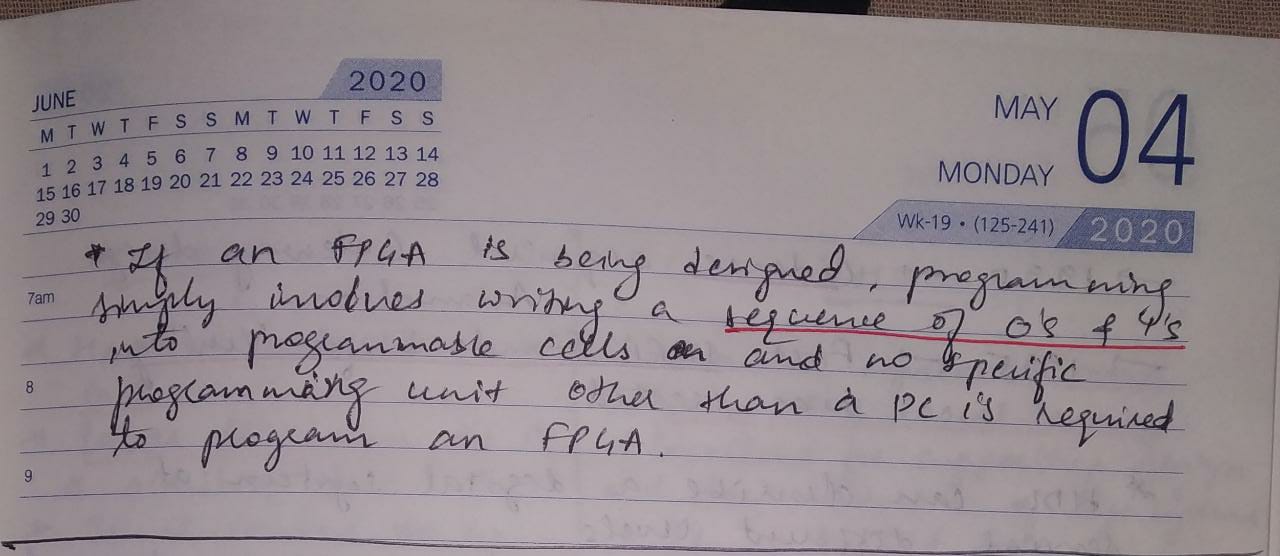 JUNE 2020
M T W T F S S M T W T F S S
1 2 3 4 5 6 7 8 9 10 11 12 13 14
15 16 17 18 19 20 21 22 23 24 25 26 27 28
29 30
MAY 04
MONDAY
Wk-19 • (125-241) 2020
* If an FPGA is being designed, programming
7am simply involves writing a sequence of 0's & 1's
into programmable cells and no specific
8 programming unit other than a PC is required
to program an FPGA.
9